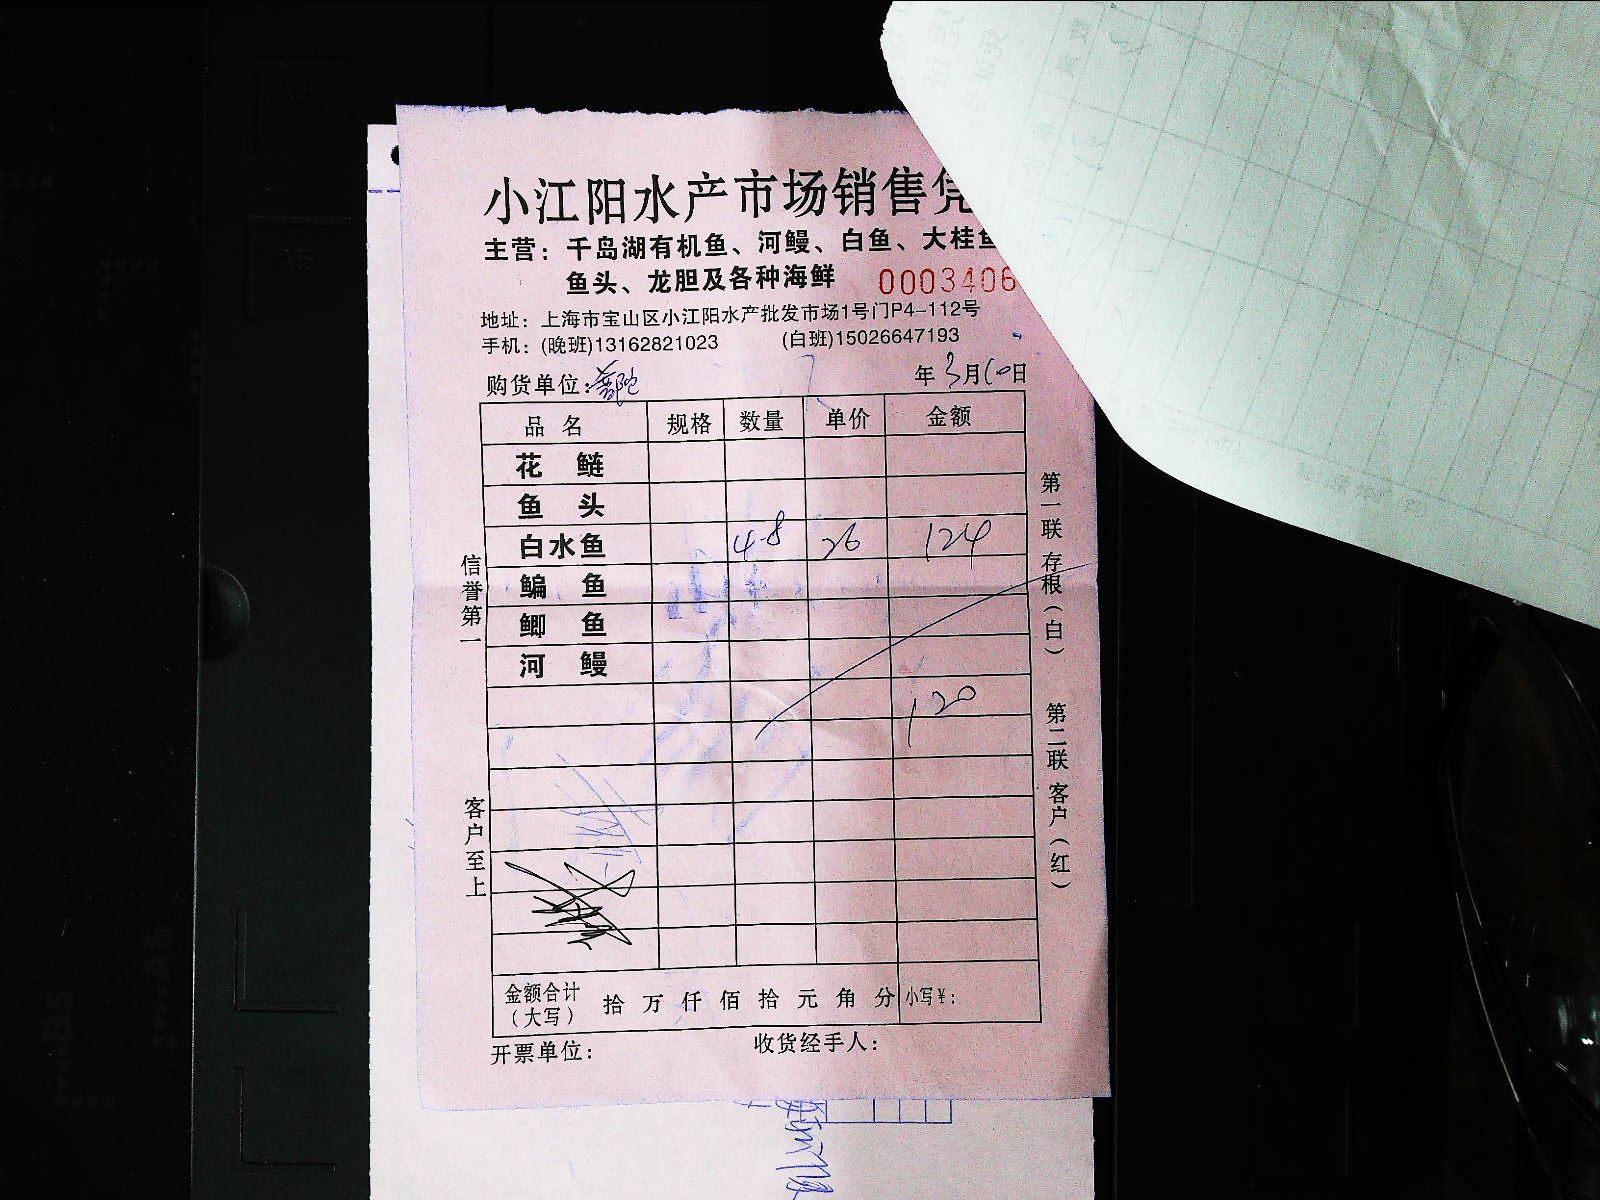 小江阳水产市场销售凭
主营：千岛湖有机鱼、河鳗、白鱼、大桂鱼
鱼头、龙胆及各种海鲜 0003406
地址：上海市宝山区小江阳水产批发市场1号门P4-112号
手机：(晚班)13162821023 (白班)15026647193
购货单位：普陀 年3月10日
品名 规格 数量 单价 金额
花鲢
鱼头
白水鱼 4.8 26 124
鳊鱼
鲫鱼
河鳗
120
金额合计（大写） 拾万仟佰拾元角分 小写¥：
开票单位： 收货经手人：
信誉第一
客户至上
第一联 存根（白）
第二联 客户（红）